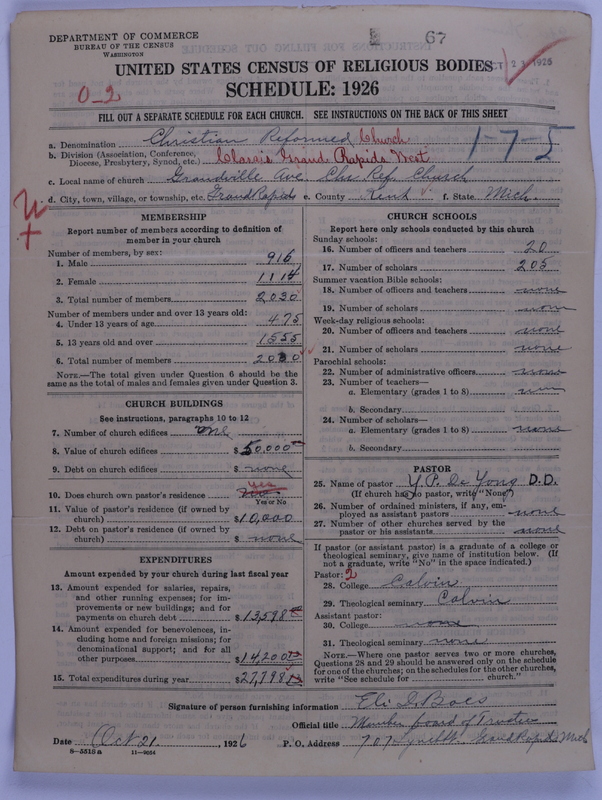 67
DEPARTMENT OF COMMERCE
BUREAU OF THE CENSUS
WASHINGTON
UNITED STATES CENSUS OF RELIGIOUS BODIES
SCHEDULE: 1926
0-2
FILL OUT A SEPARATE SCHEDULE FOR EACH CHURCH. SEE INSTRUCTIONS ON THE BACK OF THIS SHEET
a. Denomination Christian Reformed Church
1-7-5
b. Division (Association, Conference, Diocese, Presbytery, Synod, etc.) Classis Grand Rapids West
c. Local name of church Grandville Ave Chr Ref. Church
d. City, town, village, or township, etc. Grand Rapids e. County Kent f. State Mich.
MEMBERSHIP
Report number of members according to definition of
member in your church
Number of members, by sex:
1. Male 916
2. Female 1114
3. Total number of members 2030
Number of members under and over 13 years old:
4. Under 13 years of age 475
5. 13 years old and over 1555
6. Total number of members 2030
NOTE.—The total given under Question 6 should be
same as the total of males and females given under Question 3.
CHURCH BUILDINGS
See instructions, paragraphs 10 to 12
7. Number of church edifices one
8. Value of church edifices $50,000
9. Debt on church edifices $ none
10. Does church own pastor's residence yes
Yes or No
11. Value of pastor's residence (if owned by
church) $10,000
12. Debt on pastor's residence (if owned by
church) $ none
EXPENDITURES
Amount expended by your church during last fiscal year
13. Amount expended for salaries, repairs,
and other running expenses; for im-
provements or new buildings; and for
payments on church debt $13,598
14. Amount expended for benevolences, in-
cluding home and foreign missions; for
denominational support; and for all
other purposes $14,200
15. Total expenditures during year $27,798
CHURCH SCHOOLS
Report here only schools conducted by this church
Sunday schools:
16. Number of officers and teachers 20
17. Number of scholars 205
Summer vacation Bible schools:
18. Number of officers and teachers none
19. Number of scholars none
Week-day religious schools:
20. Number of officers and teachers none
21. Number of scholars none
Parochial schools:
22. Number of administrative officers none
23. Number of teachers—
a. Elementary (grades 1 to 8) none
b. Secondary
24. Number of scholars—
a. Elementary (grades 1 to 8) none
b. Secondary
PASTOR
25. Name of pastor Y. P. De Yong D.D.
(If church has no pastor, write "None")
26. Number of ordained ministers, if any, em-
ployed as assistant pastors none
27. Number of other churches served by the
pastor or his assistants none
If pastor (or assistant pastor) is a graduate of a college or
theological seminary, give name of institution below. (If
not a graduate, write "No" in the space indicated.)
Pastor: 2
28. College Calvin
29. Theological seminary Calvin
Assistant pastor:
30. College none
31. Theological seminary none
NOTE.—Where one pastor serves two or more churches,
Questions 28 and 29 should be answered only on the schedule
for one of the churches; on the schedules for the other churches,
write "See schedule for church."
Signature of person furnishing information Eli J. Baes
Official title Member board of Trustees
Date Oct 21, 1926 P. O. Address 707 Grand Rapids Mich
8-5518a 11-9054